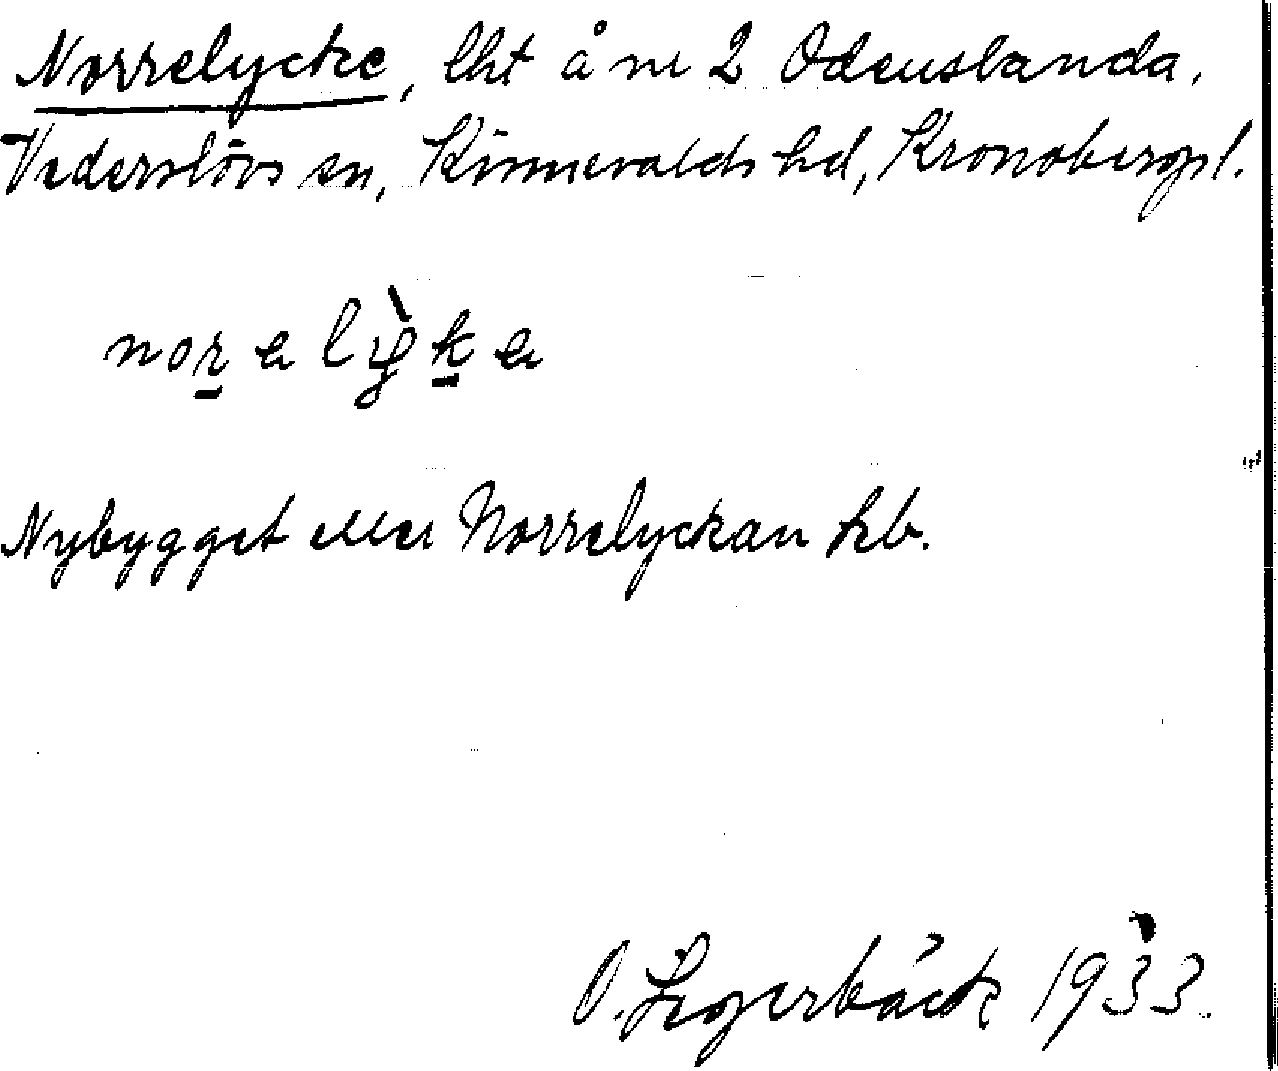 Norrelycke, lht å nr 2 Odenslanda,
Vederslövs sn, Kinnevalds hd, Kronobergs l.
norelỳke
Nybygget eller Norrelyckan kb.
O. 1933.